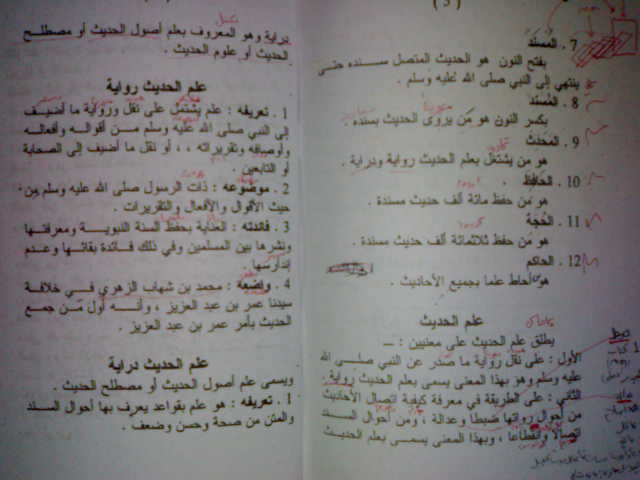 ( 3 )
7 . المسنَد
بفتح النون هو الحديث المتصل سنده حتى
ينتهي إلى النبي صلى الله عليه وسلم .
8 . المُسنِد
بكسر النون هو مَن يروى الحديث بسنده .
9 . المحدث
هو من يشتغل بعلم الحديث رواية ودراية .
10 . الحافظ
هو من حفظ مائة ألف حديث مسندة .
11 . الحُجة
هو من حفظ ثلاثمائة ألف حديث مسندة .
12 . الحاكم
هو من أحاط علما بجميع الأحاديث .
علم الحديث
يطلق علم الحديث على معنيين : ــ
الأول : على نقل رواية ما صدر عن النبي صلى الله
عليه وسلم وهو بهذا المعنى يسمى بعلم الحديث رواية .
الثاني : على الطريقة في معرفة كيفية اتصال الأحاديث
من أحوال رواتها ضبطا وعدالة ، ومن أحوال السند
اتصالا وانقطاعا ، وبهذا المعنى يسمى بعلم الحديث
دراية وهو المعروف بعلم أصول الحديث أو مصطلح
الحديث أو علوم الحديث .
علم الحديث رواية
1 . تعريفه : علم يشتمل على نقل ورواية ما أضيف
إلى النبي صلى الله عليه وسلم من أقواله وأفعاله
وأوصافه وتقريراته ، ، أو نقل ما أضيف إلى الصحابة
أو التابعين .
2 . موضوعه : ذات الرسول صلى الله عليه وسلم من
حيث الأقوال والأفعال والتقريرات .
3 . فائدته : العناية بحفظ السنة النبوية ومعرفتها
ونشرها بين المسلمين وفي ذلك فائدة بقائها وعدم
إندارسها .
4 . واضعه : محمد بن شهاب الزهري في خلافة
سيدنا عمر بن عبد العزيز ، وأنه أول من جمع
الحديث بأمر عمر بن عبد العزيز .
علم الحديث دراية
ويسمى علم أصول الحديث أو مصطلح الحديث .
1 . تعريفه : هو علم بقواعد يعرف بها أحوال السند
والمتن من صحة وحسن وضعف .